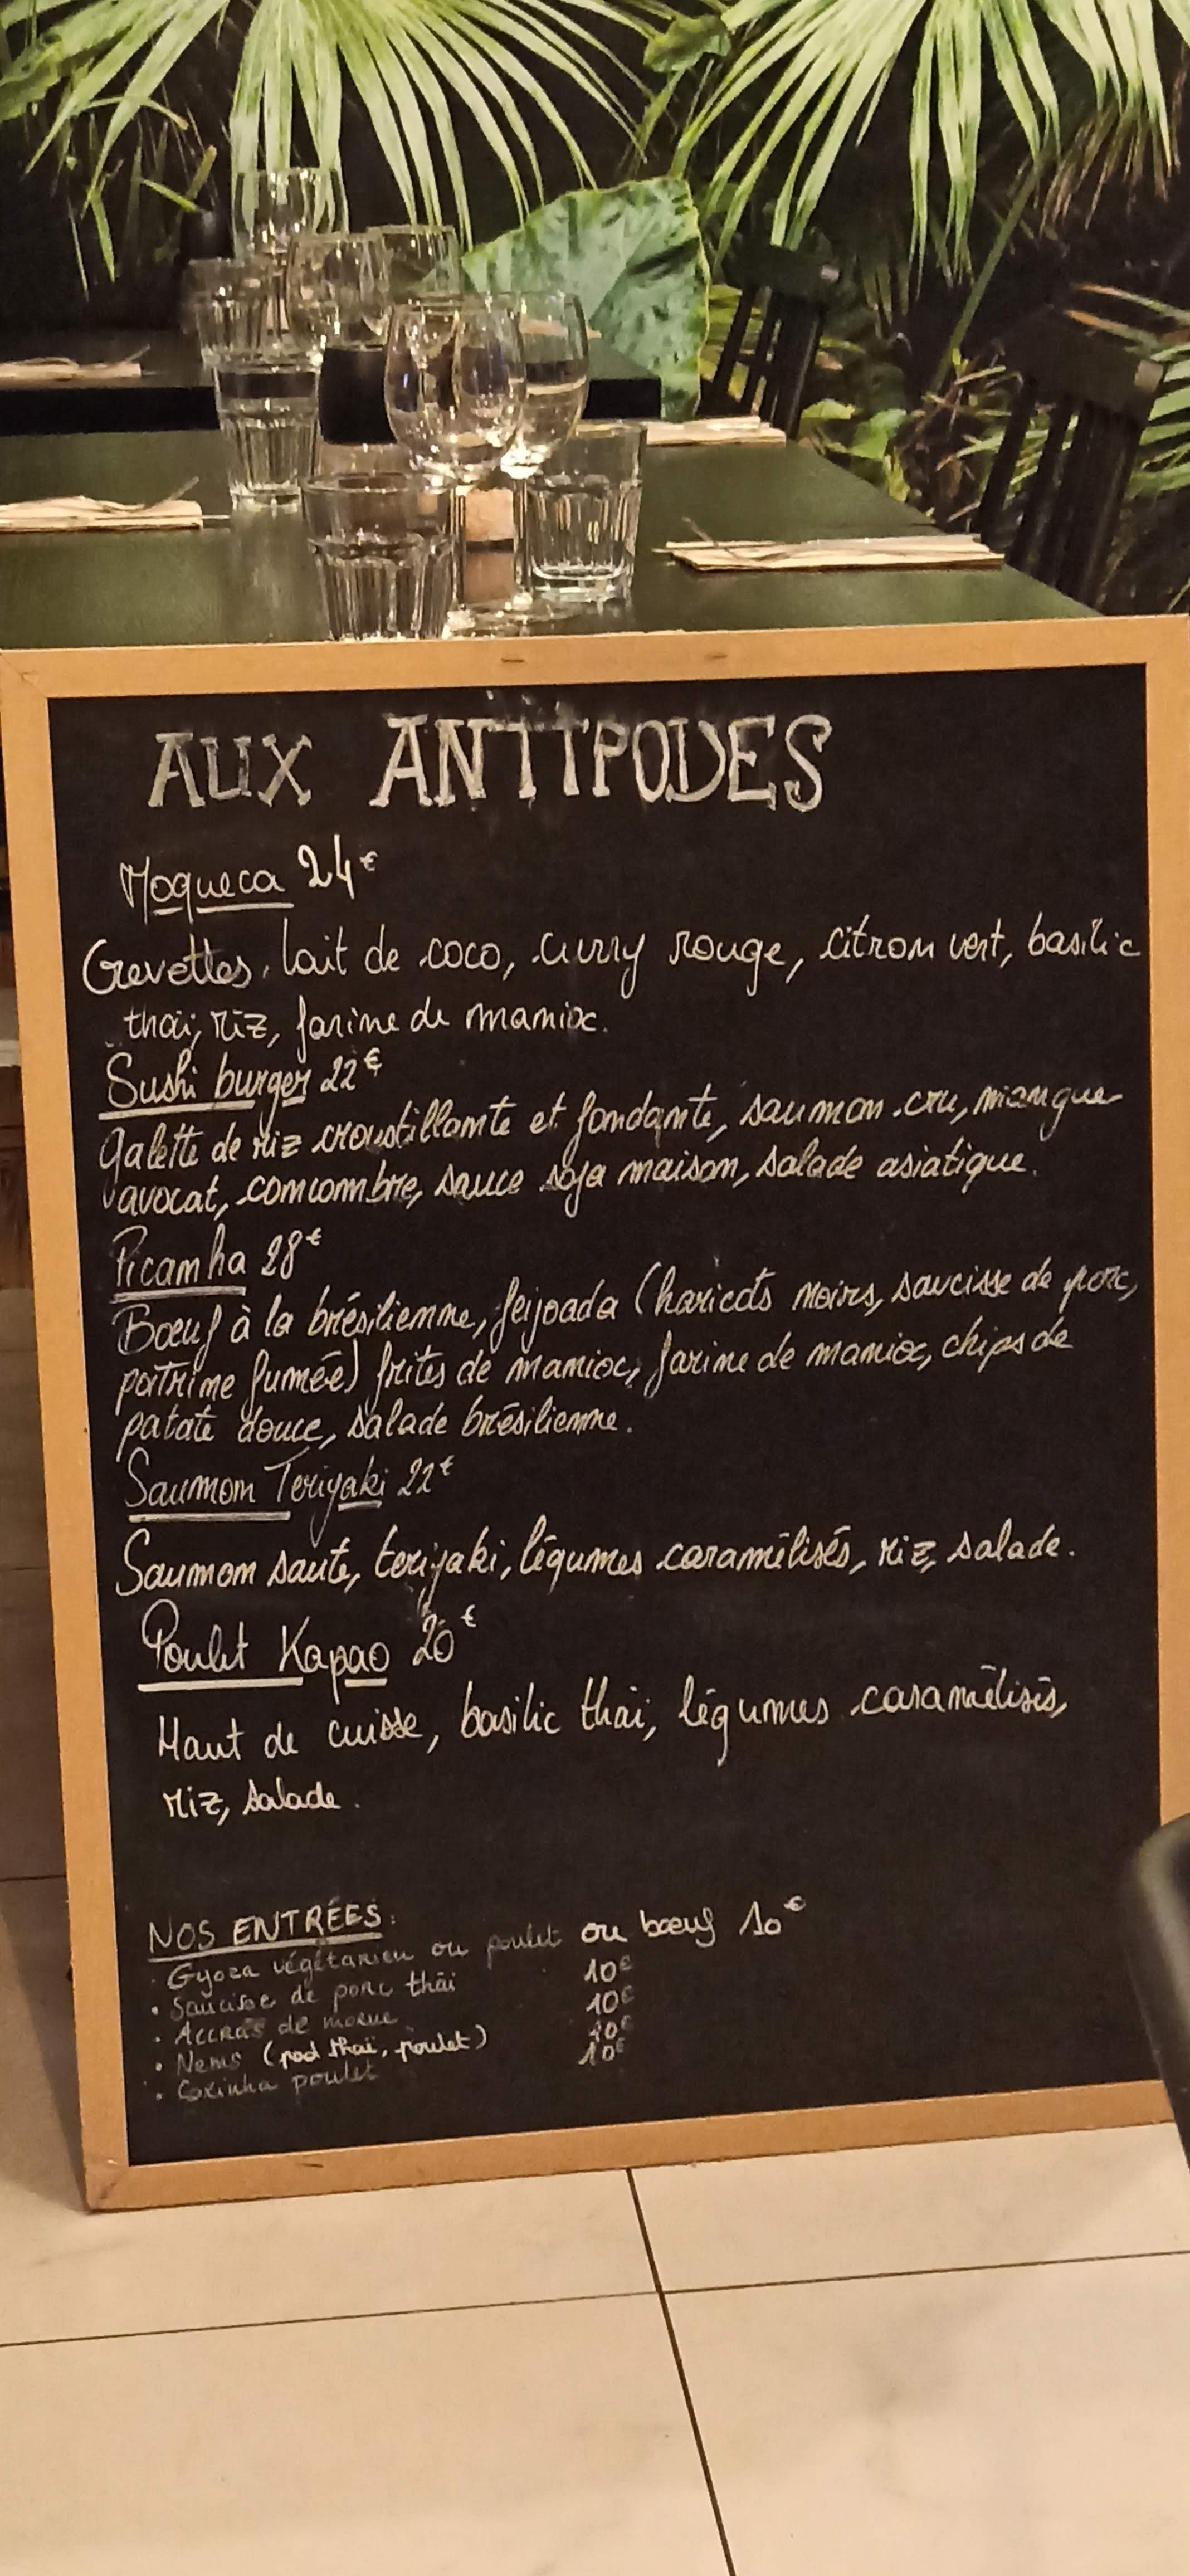 AUX ANTIPODES
Moqueca 24€
Crevettes, lait de coco, curry rouge, citron vert, basilic
thaï, riz, farine de manioc.
Sushi burger 22€
galette de riz croustillante et fondante, saumon cru, mangue
avocat, concombre, sauce soja maison, salade asiatique.
Picanha 28€
Bœuf à la brésilienne, feijoada (haricots noirs, saucisse de porc,
poitrine fumée) frites de manioc, farine de manioc, chips de
patate douce, salade brésilienne.
Saumon Teriyaki 22€
Saumon sauté, teriyaki, légumes caramélisés, riz, salade.
Poulet Kapao 20€
Haut de cuisse, basilic thaï, légumes caramélisés,
riz, salade.
NOS ENTRÉES:
· Gyoza végétarien ou poulet ou bœuf 10€
· Saucisse de porc thaï 10€
· Accras de morue 10€
· Nems (pad thaï, poulet) 10€
· Coxinha poulet 10€